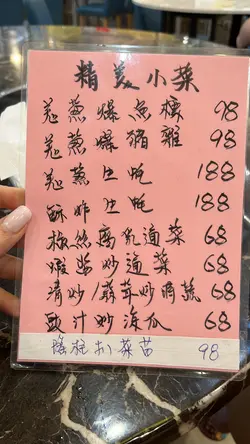 精美小菜
羌葱爆魚 98
羌葱爆豬雜 98
羌葱生蚝 188
酥炸生蚝 188
椒絲腐乳通菜 68
蝦醬炒通菜 68
清炒/蒜茸炒時蔬 68
豉汁炒凉瓜 68
瑤柱扒菜苗 98